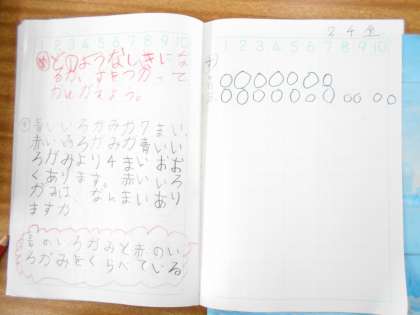 1 2 3 4 5 6 7 8 9 10
どのようなしきにな
るか、ずをつかって
かんがえよう。
青いいろがみが7まい、
赤いいろがみが青いい
ろがみより4まいおお
くあります。赤いいろ
がみは、なんまいあり
ますか
青のいろがみと赤のい
ろがみをくらべている
1 2 3 4 5 6 7 8 9 10